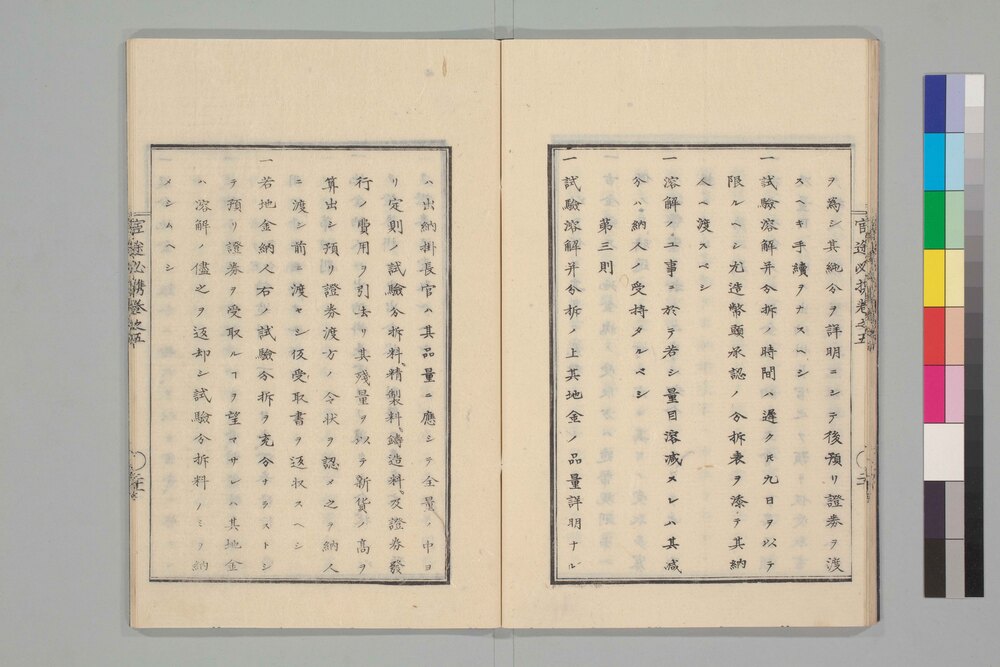 ヲ爲シ其純分ヲ詳明ニシテ後預リ證券ヲ渡
スヘキ手續ヲナスヘシ
一試驗溶解并分拆ノ時間ハ遲クㇳモ九日ヲ以テ
限ルヘシ尤造幣頭承認ノ分拆表ヲ添テ其納
人ヘ渡スベシ
一溶解ノ工事ニ於テ若シ量目溶减スレハ其减
分ハ納人ノ受持タルベシ
第三則
一試驗溶解并分拆ノ上其地金ノ品量詳明ナル
ハ出納掛長官ハ其品量ニ應シテ全量ノ中ヨ
リ定則ノ試驗分拆料、精製料、鑄造料、及證券發
行ノ費用ヲ引去リ其殘量ヲ以テ新貨ノ高ヲ
算出シ預リ證券渡方ノ令狀ヲ認メ之ヲ納人
ニ渡シ前ニ渡セシ仮受取書ヲ返收スヘシ
一若地金納人右ノ試驗分拆ヲ充分ナラストシ
テ預リ證券ヲ受取ルヿヲ望マサレハ其地金
ハ溶解ノ儘之ヲ返却シ試驗分拆料ノミヲ納
メシムヘシ
官途必携卷之五